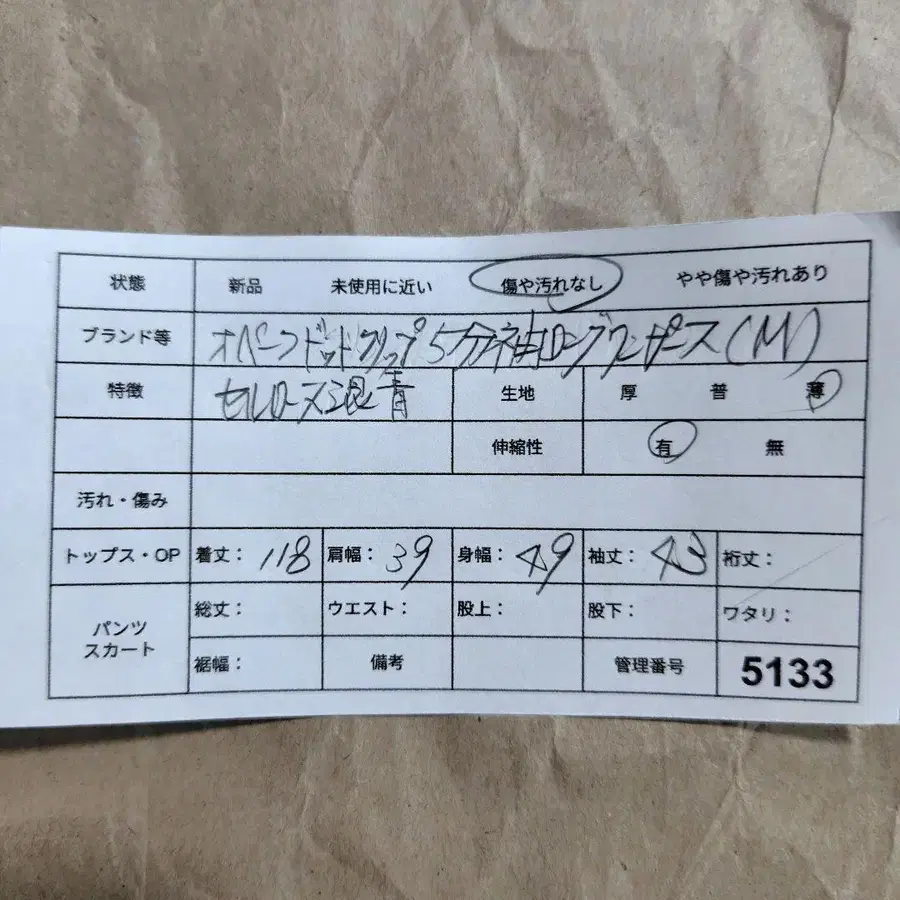 状態 新品 未使用に近い 傷や汚れなし やや傷や汚れあり
ブランド等 オペークドットクリップ5分袖ロングワンピース(M)
特徴 セルロース混 青 生地 厚 普 薄
伸縮性 有 無
汚れ・傷み
トップス・OP 着丈: 118 肩幅: 39 身幅: 49 袖丈: 43 裄丈:
パンツ スカート 総丈: ウエスト: 股上: 股下: ワタリ:
裾幅: 備考 管理番号 5133